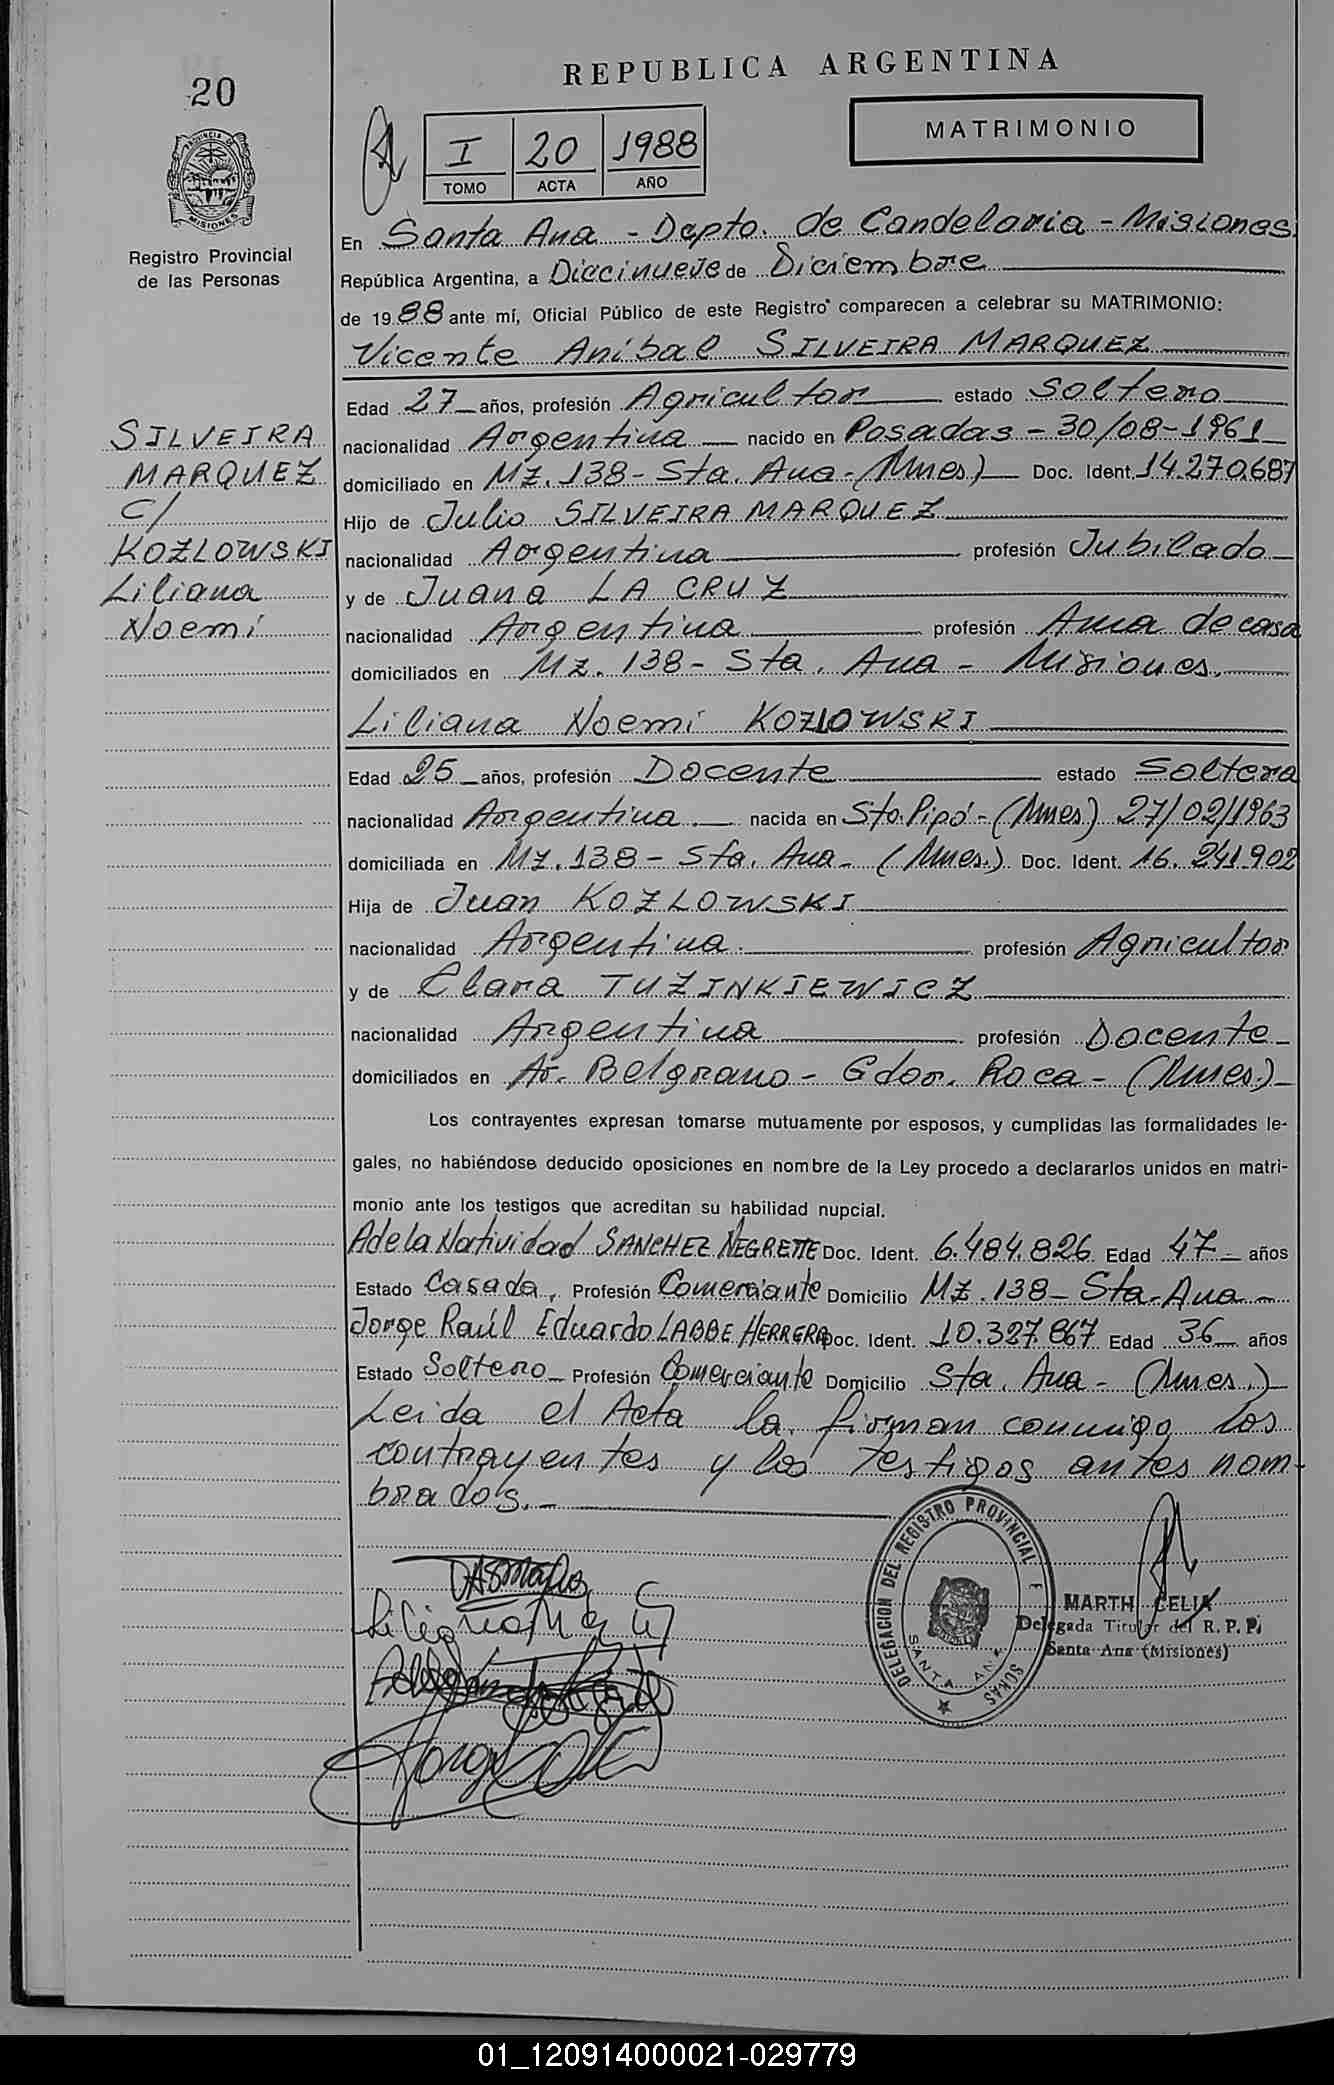 REPUBLICA ARGENTINA
20
MATRIMONIO
I 20 1988
TOMO ACTA AÑO
PROVINCIA D
MISIONES
Registro Provincial
de las Personas
En Santa Ana - Depto. de Candelaria - Misiones
República Argentina, a Diecinueve de Diciembre
de 1988 ante mí, Oficial Público de este Registro comparecen a celebrar su MATRIMONIO:
Vicente Aníbal SILVEIRA MARQUEZ
Edad 27 años, profesión Agricultor estado Soltero
nacionalidad Argentina nacido en Posadas - 30/08-1961
domiciliado en Mz. 138 - Sta. Ana - (Mnes) Doc. Ident. 14.270.687
Hijo de Julio SILVEIRA MARQUEZ
nacionalidad Argentina profesión Jubilado
y de Juana LA CRUZ
nacionalidad Argentina profesión Ama de casa
domiciliados en Mz. 138 - Sta. Ana - Misiones.
SILVEIRA
MARQUEZ
C/
KOZLOWSKI
Liliana
Noemi
Liliana Noemi KOZLOWSKI
Edad 25 años, profesión Docente estado Soltera
nacionalidad Argentina nacida en Sto. Pipó - (Mnes) 27/02/1963
domiciliada en Mz. 138 - Sta. Ana - (Mnes.) Doc. Ident. 16.241.902
Hija de Juan KOZLOWSKI
nacionalidad Argentina. profesión Agricultor
y de Clara TUZINKIEWICZ
nacionalidad Argentina profesión Docente
domiciliados en Av. Belgrano - Gdor. Roca - (Mnes.)
Los contrayentes expresan tomarse mutuamente por esposos, y cumplidas las formalidades le-
gales, no habiéndose deducido oposiciones en nombre de la Ley procedo a declararlos unidos en matri-
monio ante los testigos que acreditan su habilidad nupcial.
Adela Natividad SANCHEZ NEGRETTE Doc. Ident. 6.484.826 Edad 47 años
Estado Casada, Profesión Comerciante Domicilio Mz. 138 - Sta. Ana -
Jorge Raúl Eduardo LABBE HERRERA Doc. Ident. 10.327.867 Edad 36 años
Estado Soltero Profesión Comerciante Domicilio Sta. Ana - (Mnes.)
Leida el Acta la firman conmigo los
contrayentes y los testigos antes nom-
brados. -
DELEGACION DEL REGISTRO PROVINCIAL
SANTA ANA
MARTH CELIA
Delegada Titular del R. P. P.
Santa Ana (Misiones)
01_120914000021-029779